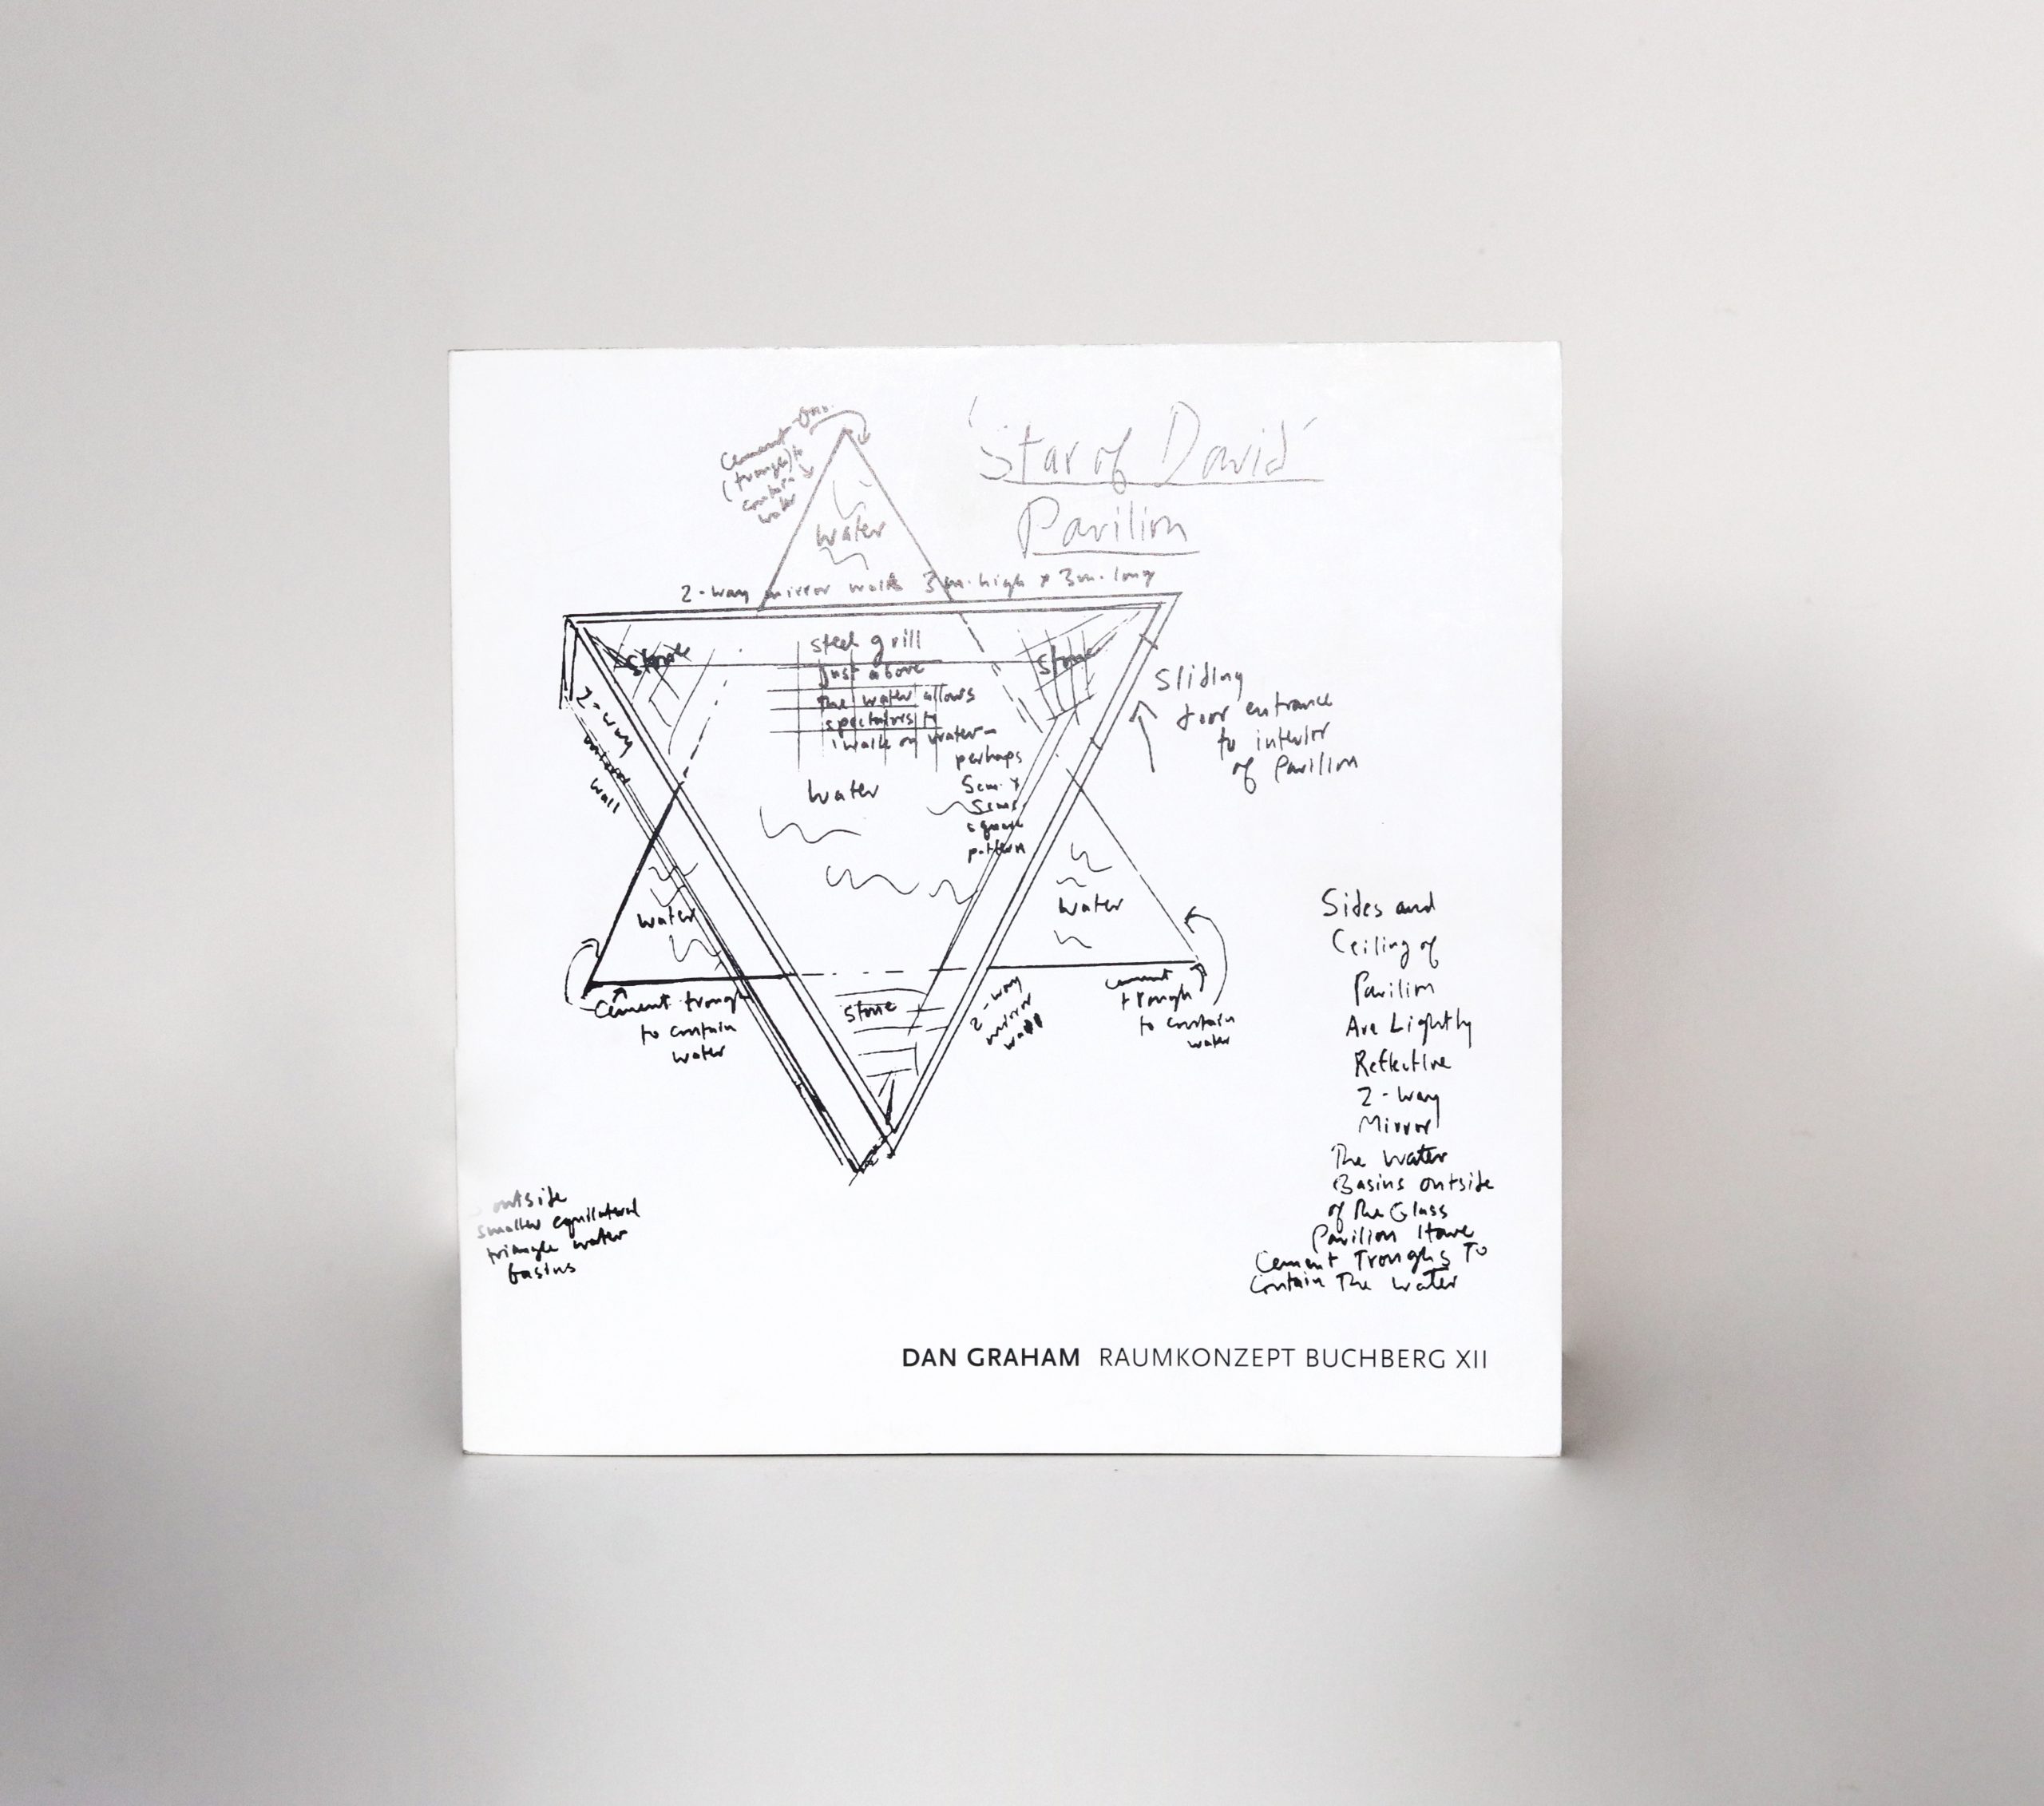 'Star of David'
Pavilion
cement
(trough) to
contain
water
water
2-way mirror walls 3m. high x 3m. long
stone
steel grill
just above
the water allows
spectators to
walk on water-
perhaps
5cm. x
5cms.
square
pattern
stone
2-way
mirror
wall
Sliding
door entrance
to interior
of Pavilion
water
water
water
Cement trough
to contain
water
stone
2-way
mirror
wall
cement
trough
to contain
water
Sides and
Ceiling of
Pavilion
Are Lightly
Reflective
2-way
Mirror
The Water
Basins outside
of The Glass
Pavilion Have
Cement Troughs To
Contain The Water
outside
smaller equilateral
triangle water
basins
DAN GRAHAM RAUMKONZEPT BUCHBERG XII